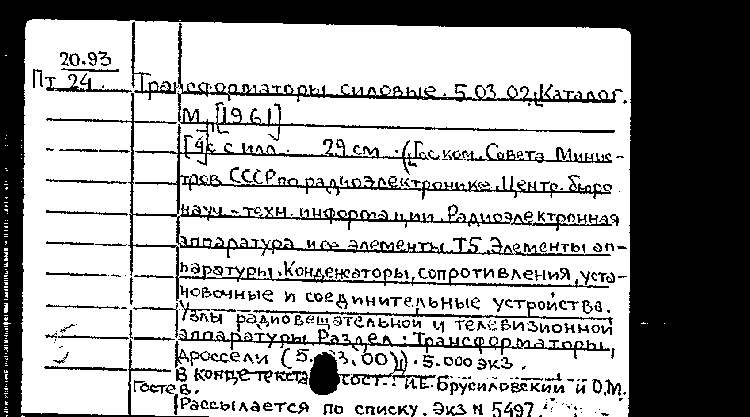 20.93
Пт 24. Трансформаторы силовые. 5.03.02. Каталог.
М., [1961]
[4]с с илл. 29 см. (Гос ком. Совета Минис-
тров СССР по радиоэлектронике. Центр. бюро
науч.-техн. информации. Радиоэлектронная
аппаратура и ее элементы. Т5. Элементы ап-
паратуры. Конденсаторы, сопротивления, уста-
новочные и соединительные устройства.
Узлы радиовещательной и телевизионной
аппаратуры. Раздел: Трансформаторы,
дроссели (5. 3.00)). 5.000 экз.
В конце текста сост.: И.Е. Брусиловский и О.М.
Гостев.
Рассылается по списку. Экз N 5497.